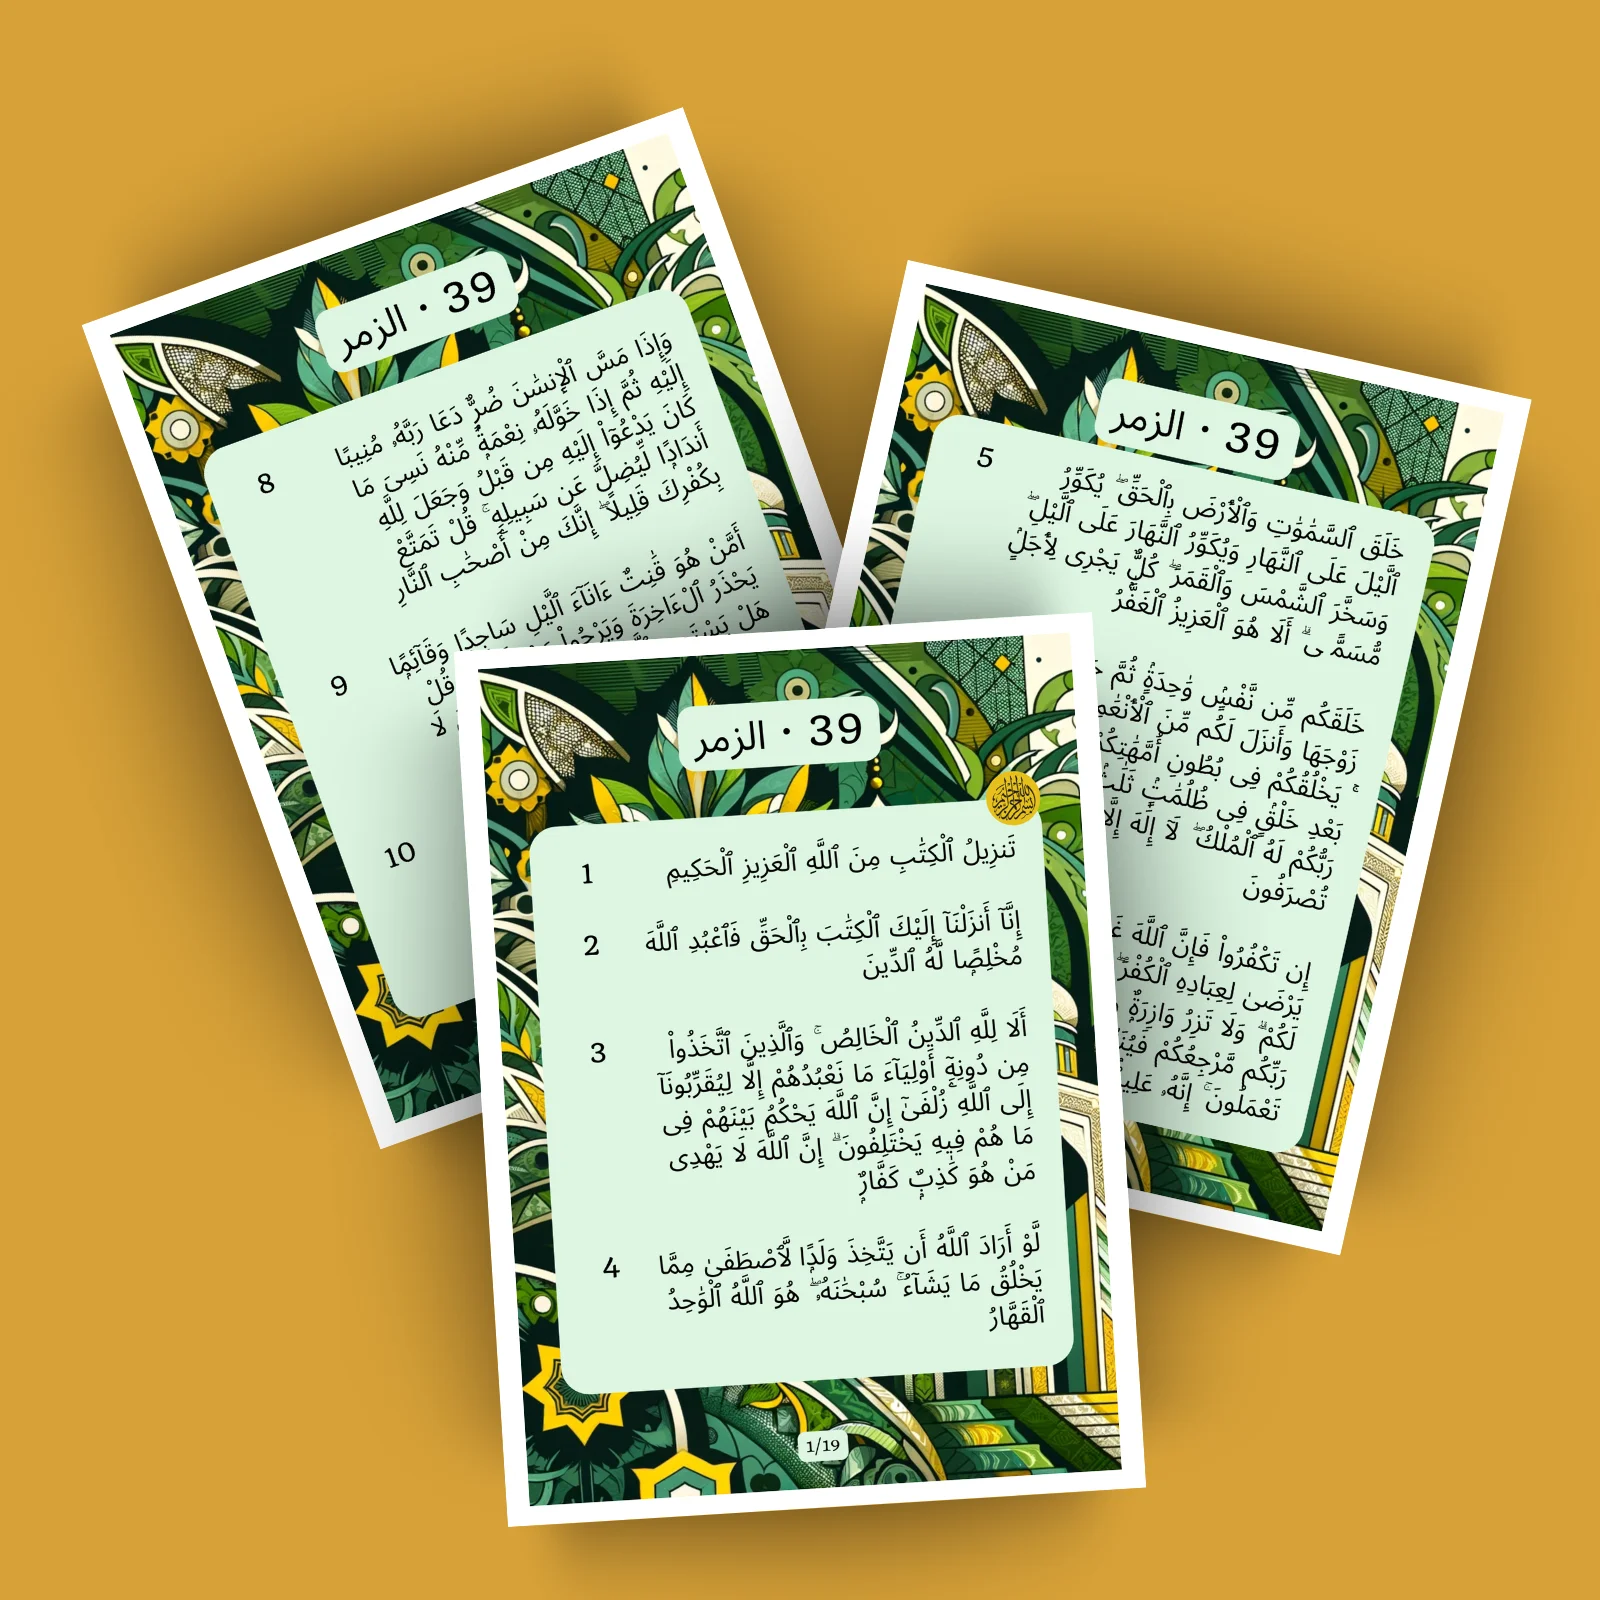 39 · الزمر
8
وَإِذَا مَسَّ ٱلْإِنسَٰنَ ضُرٌّۭ دَعَا رَبَّهُۥ مُنِيبًا
إِلَيْهِ ثُمَّ إِذَا خَوَّلَهُۥ نِعْمَةًۭ مِّنْهُ نَسِىَ مَا
كَانَ يَدْعُوٓا۟ إِلَيْهِ مِن قَبْلُ وَجَعَلَ لِلَّهِ
أَندَادًۭا لِّيُضِلَّ عَن سَبِيلِهِۦ ۚ قُلْ تَمَتَّعْ
بِكُفْرِكَ قَلِيلًا ۖ إِنَّكَ مِنْ أَصْحَٰبِ ٱلنَّارِ
9
أَمَّنْ هُوَ قَٰنِتٌ ءَانَآءَ ٱلَّيْلِ سَاجِدًۭا وَقَآئِمًۭا
يَحْذَرُ ٱلْءَاخِرَةَ وَيَرْجُوا۟
هَلْ
قُلْ
لَا
10
39 · الزمر
5
خَلَقَ ٱلسَّمَٰوَٰتِ وَٱلْأَرْضَ بِٱلْحَقِّ ۖ يُكَوِّرُ
ٱلَّيْلَ عَلَى ٱلنَّهَارِ وَيُكَوِّرُ ٱلنَّهَارَ عَلَى ٱلَّيْلِ ۖ
وَسَخَّرَ ٱلشَّمْسَ وَٱلْقَمَرَ ۖ كُلٌّۭ يَجْرِى لِأَجَلٍۢ
مُّسَمًّى ۗ أَلَا هُوَ ٱلْعَزِيزُ ٱلْغَفَّٰرُ
خَلَقَكُم مِّن نَّفْسٍۢ وَٰحِدَةٍۢ ثُمَّ
زَوْجَهَا وَأَنزَلَ لَكُم مِّنَ ٱلْأَنْعَٰمِ
ۚ يَخْلُقُكُمْ فِى بُطُونِ أُمَّهَٰتِكُمْ
بَعْدِ خَلْقٍۢ فِى ظُلُمَٰتٍۢ ثَلَٰثٍۢ
رَبُّكُمْ لَهُ ٱلْمُلْكُ ۖ لَآ إِلَٰهَ إِلَّا
تُصْرَفُونَ
إِن تَكْفُرُوا۟ فَإِنَّ ٱللَّهَ
يَرْضَىٰ لِعِبَادِهِ ٱلْكُفْرَ ۖ
لَكُمْ ۗ وَلَا تَزِرُ وَازِرَةٌۭ
رَبِّكُم مَّرْجِعُكُمْ
تَعْمَلُونَ ۚ إِنَّهُۥ
39 · الزمر
1
تَنزِيلُ ٱلْكِتَٰبِ مِنَ ٱللَّهِ ٱلْعَزِيزِ ٱلْحَكِيمِ
2
إِنَّآ أَنزَلْنَآ إِلَيْكَ ٱلْكِتَٰبَ بِٱلْحَقِّ فَٱعْبُدِ ٱللَّهَ
مُخْلِصًۭا لَّهُ ٱلدِّينَ
3
أَلَا لِلَّهِ ٱلدِّينُ ٱلْخَالِصُ ۚ وَٱلَّذِينَ ٱتَّخَذُوا۟
مِن دُونِهِۦٓ أَوْلِيَآءَ مَا نَعْبُدُهُمْ إِلَّا لِيُقَرِّبُونَآ
إِلَى ٱللَّهِ زُلْفَىٰٓ إِنَّ ٱللَّهَ يَحْكُمُ بَيْنَهُمْ فِى
مَا هُمْ فِيهِ يَخْتَلِفُونَ ۗ إِنَّ ٱللَّهَ لَا يَهْدِى
مَنْ هُوَ كَٰذِبٌۭ كَفَّارٌۭ
4
لَّوْ أَرَادَ ٱللَّهُ أَن يَتَّخِذَ وَلَدًۭا لَّٱصْطَفَىٰ مِمَّا
يَخْلُقُ مَا يَشَآءُ ۚ سُبْحَٰنَهُۥ ۖ هُوَ ٱللَّهُ ٱلْوَٰحِدُ
ٱلْقَهَّارُ
1/19